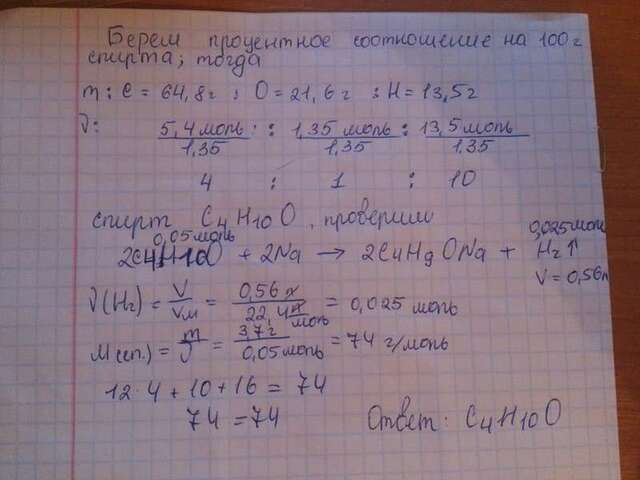 Берем процентное соотношение на 100г
спирта; тогда
m: C = 64,8г ; O = 21,6г ; H = 13,5г
ν: 5,4 моль/1,35 : 1,35 моль/1,35 : 13,5 моль/1,35
4 : 1 : 10
спирт C4H10O, проверим
0,05 моль 0,025 моль
2C4H10O + 2Na → 2C4H9ONa + H2↑
V = 0,56л
ν(H2) = V/Vм = 0,56 л/22,4 л/моль = 0,025 моль
M(сп.) = m/ν = 3,7г/0,05 моль = 74 г/моль
12·4 + 10 + 16 = 74
74 = 74 Ответ: C4H10O